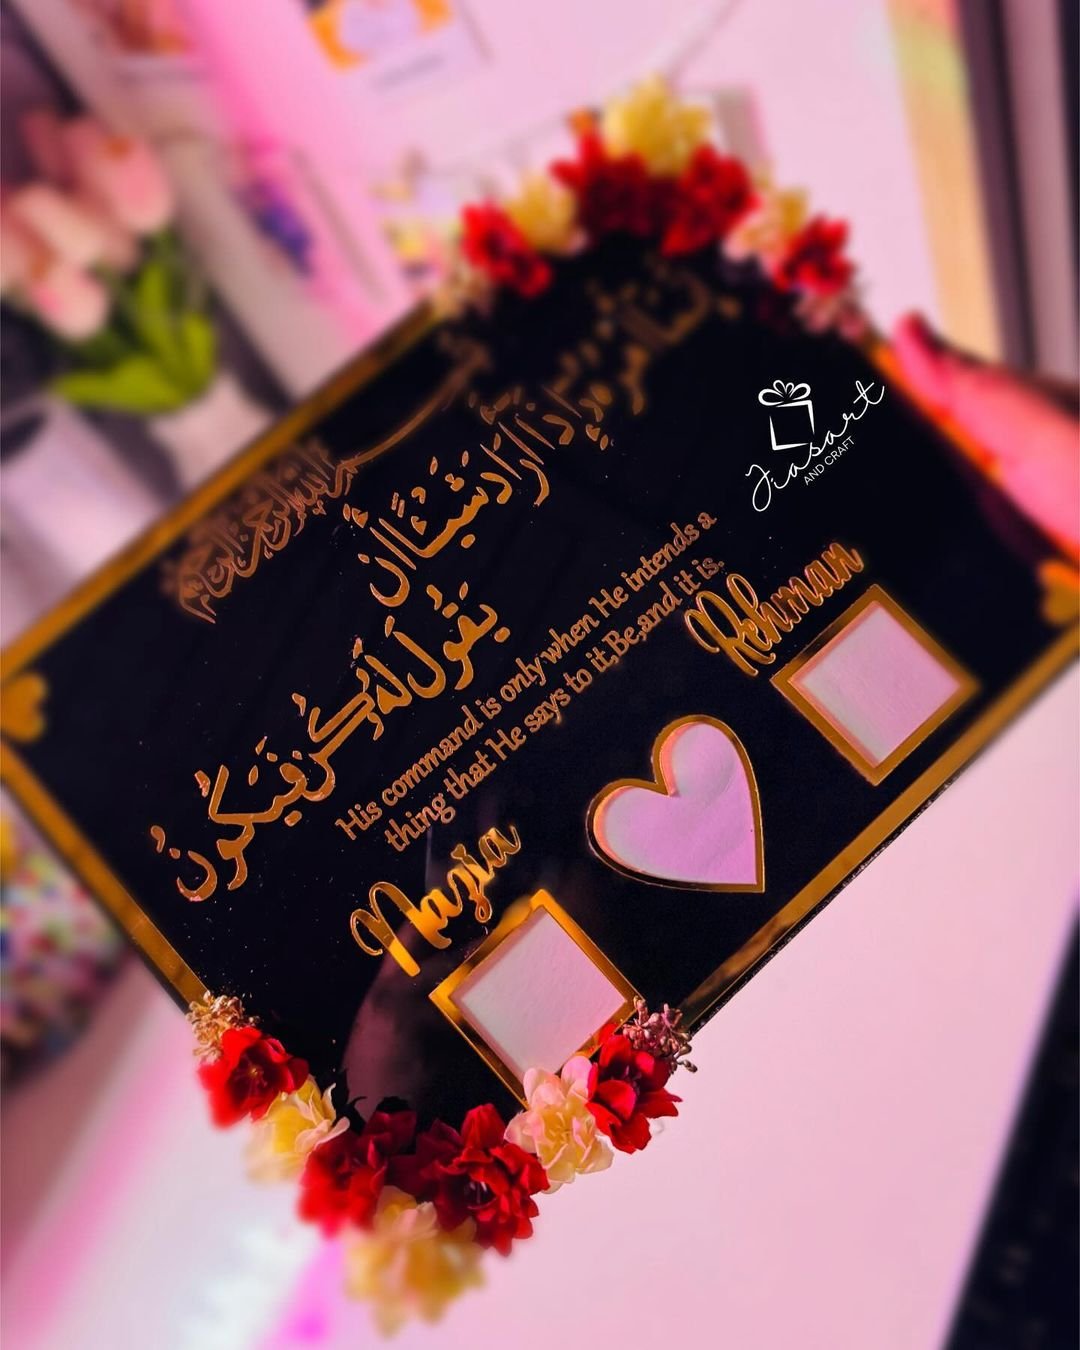 بسم الله الرحمن الرحيم
إِنَّمَا أَمْرُهُ إِذَا أَرَادَ شَيْئًا أَن
يَقُولَ لَهُ كُن فَيَكُونُ
His command is only when He intends a
thing that He says to it,Be,and it is.
Nazia
Rehman
Jiasart
AND CRAFT